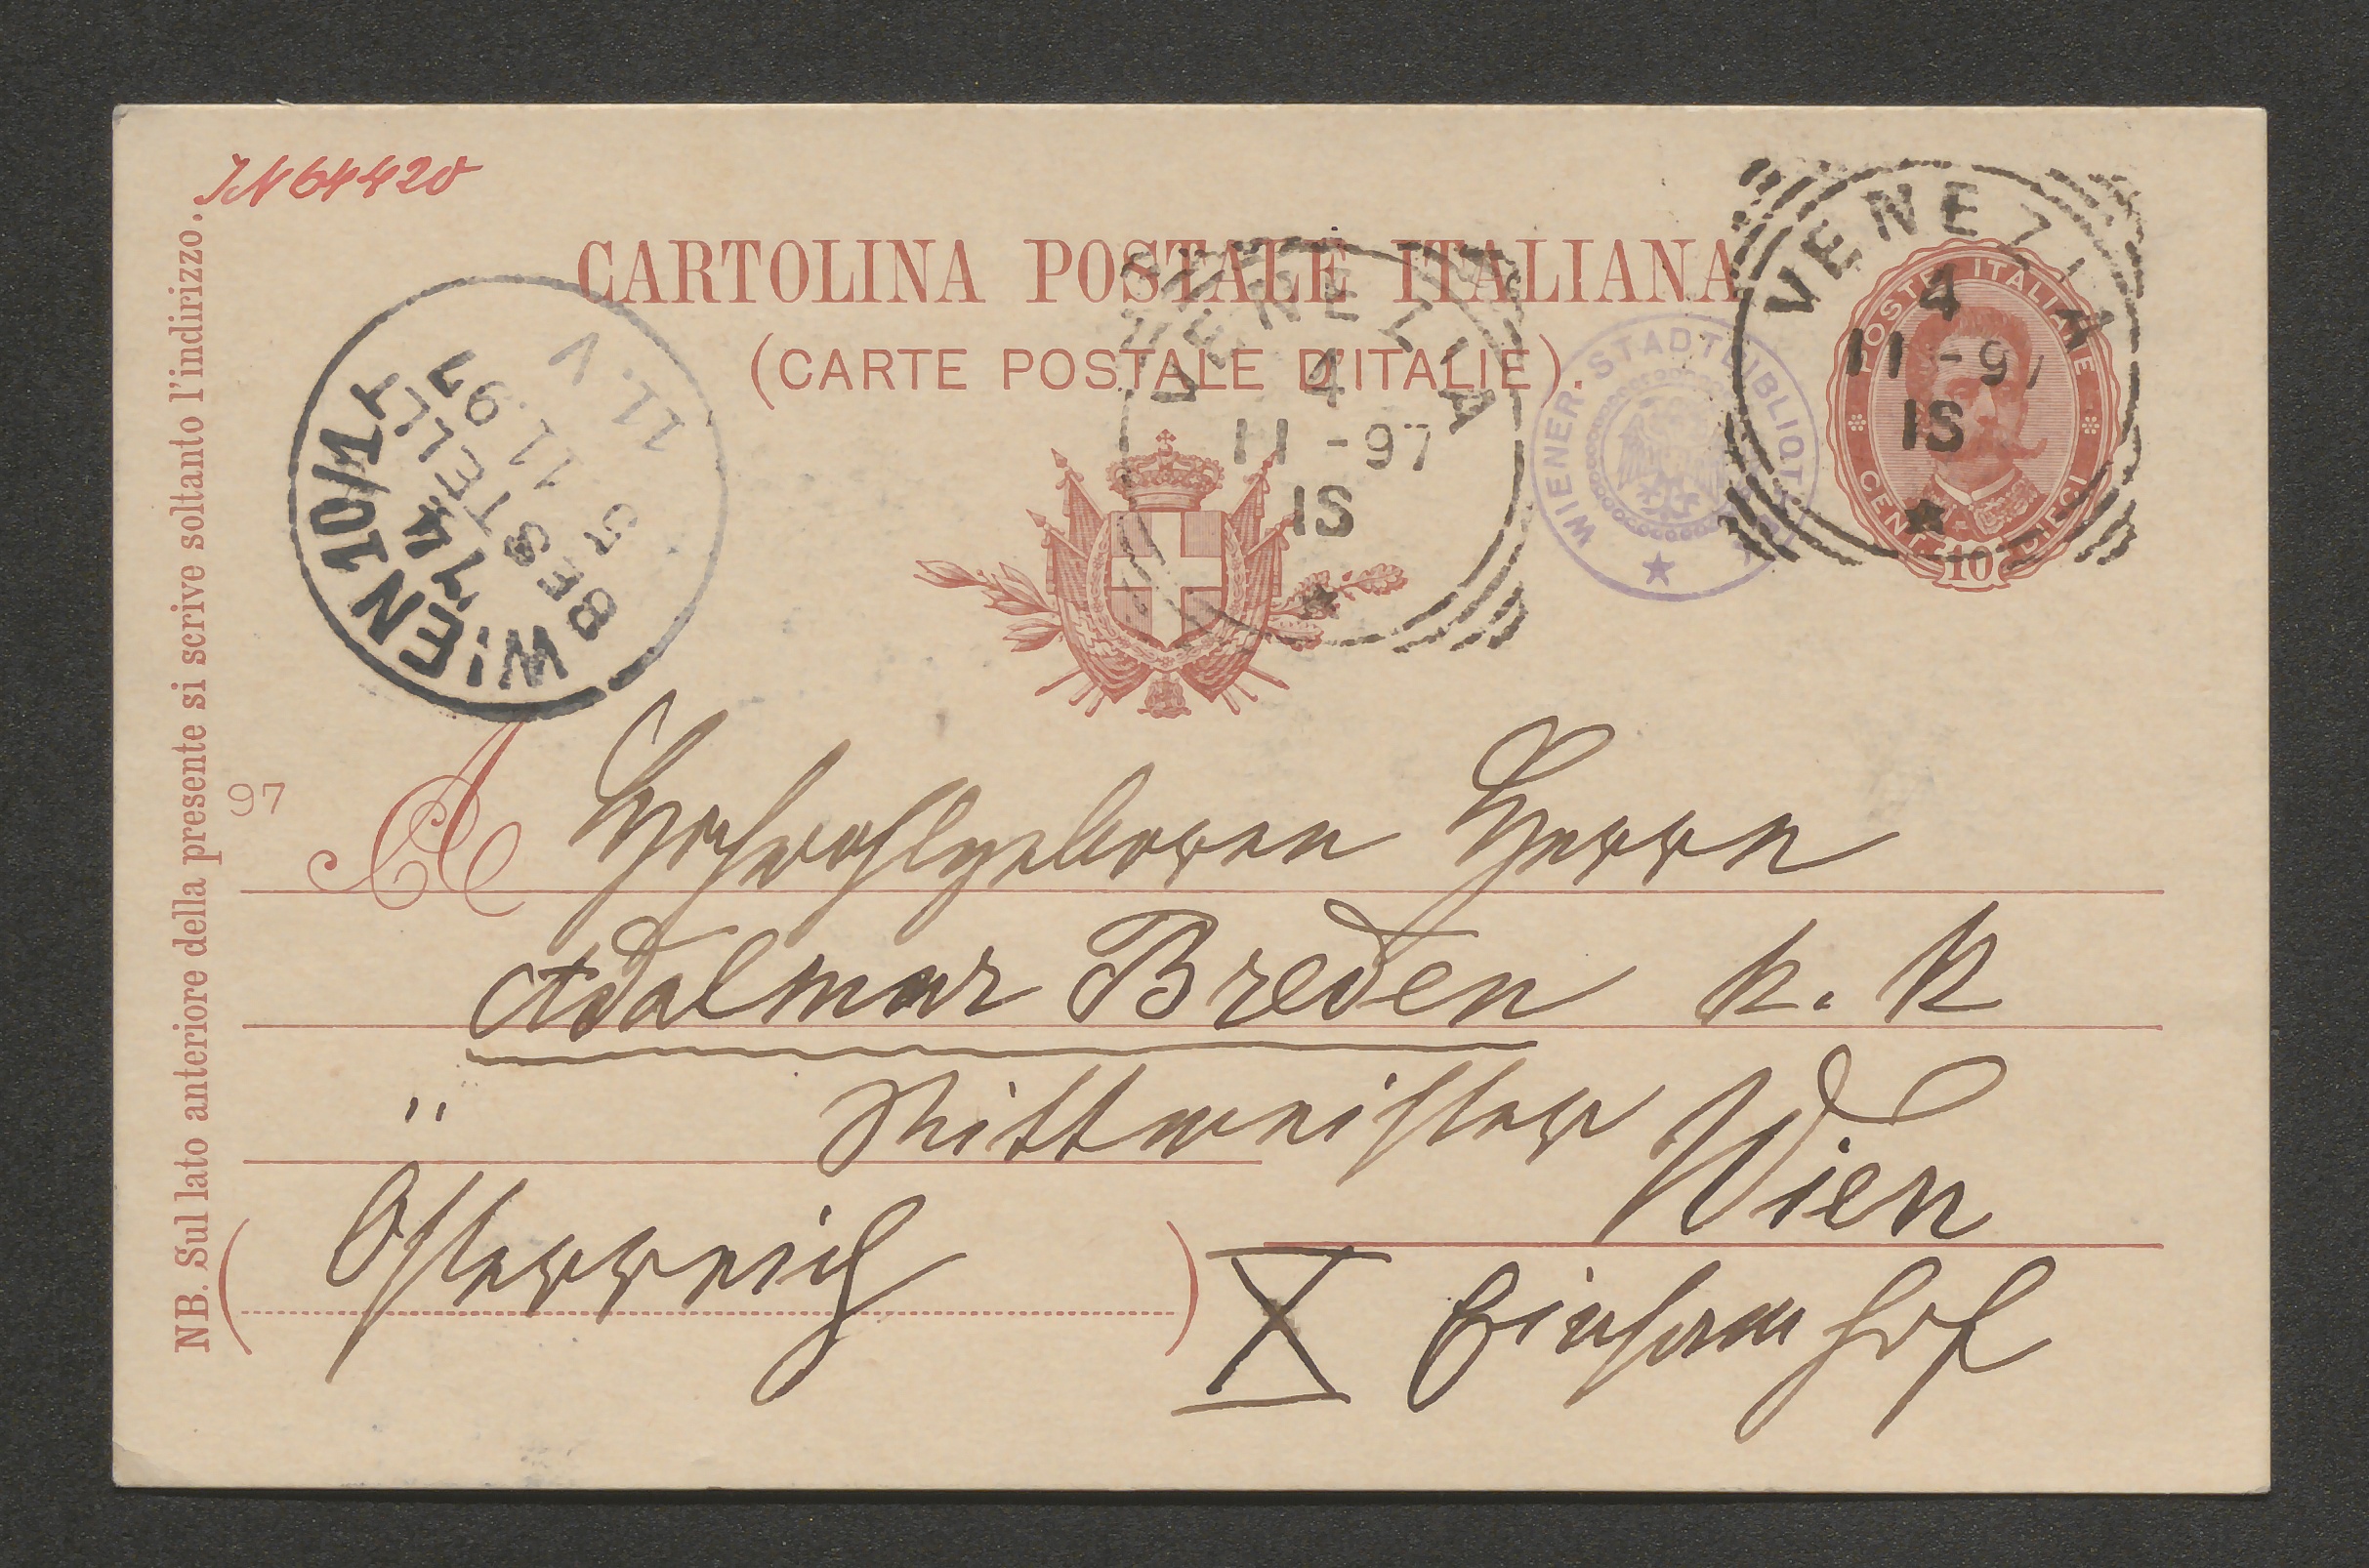 IN 64420
CARTOLINA POSTALE ITALIANA
(CARTE POSTALE D'ITALIE).
NB. Sul lato anteriore della presente si scrive soltanto l'indirizzo.
97
VENEZIA
4
11 - 97
1S
★
VENEZIA
4
11 - 97
1S
★
POSTE ITALIANE
CENTESIMI DIECI
10
WIENER STADTBIBLIOTHEK
WIEN 10/1
14
BESTELLT
8
5 11.97
11.V
A Hochwohlgeboren Herrn
Adalmar Breden k. k
Rittmeister
Wien
(Österreich)
X Einsamhof